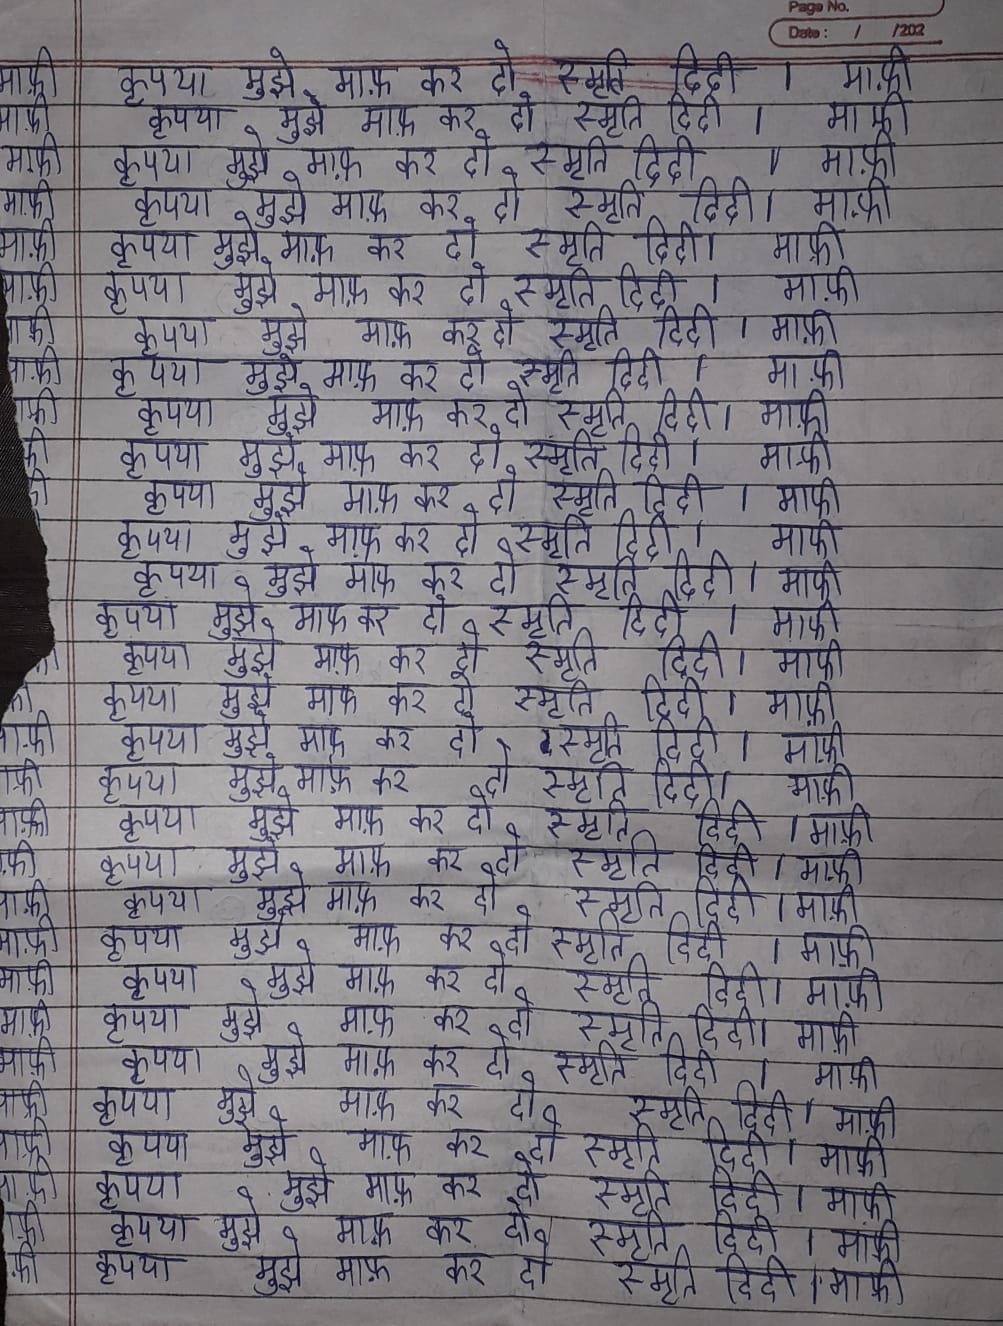 Page No.
Date : / /202
माफ़ी कृपया मुझे माफ़ कर दो स्मृति दिदी । माफ़ी
माफ़ी कृपया मुझे माफ़ कर दो स्मृति दिदी । माफ़ी
माफ़ी कृपया मुझे माफ़ कर दो स्मृति दिदी । माफ़ी
माफ़ी कृपया मुझे माफ़ कर दो स्मृति दिदी । माफ़ी
माफ़ी कृपया मुझे माफ़ कर दो स्मृति दिदी । माफ़ी
माफ़ी कृपया मुझे माफ़ कर दो स्मृति दिदी । माफ़ी
कृपया मुझे माफ़ कर दो स्मृति दिदी । माफ़ी
कृपया मुझे माफ़ कर दो स्मृति दिदी । माफ़ी
कृपया मुझे माफ़ कर दो स्मृति दिदी । माफ़ी
कृपया मुझे माफ़ कर दो स्मृति दिदी । माफ़ी
कृपया मुझे माफ़ कर दो स्मृति दिदी । माफी
कृपया मुझे माफ़ कर दो स्मृति दिदी । माफी
कृपया मुझे माफ कर दो स्मृति दिदी । माफी
कृपया मुझे माफ कर दो स्मृति दिदी । माफी
कृपया मुझे माफ कर दो स्मृति दिदी । माफी
कृपया मुझे माफ कर दो स्मृति दिदी । माफ़ी
कृपया मुझे माफ कर दो स्मृति दिदी । माफ़ी
कृपया मुझे माफ़ कर दो स्मृति दिदी । माफ़ी
कृपया मुझे माफ़ कर दो स्मृति दिदी । माफ़ी
कृपया मुझे माफ़ कर दो स्मृति दिदी । माफ़ी
कृपया मुझे माफ़ कर दो स्मृति दिदी । माफ़ी
माफ़ी कृपया मुझे माफ़ कर दो स्मृति दिदी । माफ़ी
माफ़ी कृपया मुझे माफ़ कर दो स्मृति दिदी । माफ़ी
माफ़ी कृपया मुझे माफ़ कर दो स्मृति दिदी । माफ़ी
माफ़ी कृपया मुझे माफ़ कर दो स्मृति दिदी । माफ़ी
कृपया मुझे माफ़ कर दो स्मृति दिदी । माफ़ी
कृपया मुझे माफ़ कर दो स्मृति दिदी । माफ़ी
कृपया मुझे माफ़ कर दो स्मृति दिदी । माफ़ी
कृपया मुझे माफ़ कर दो स्मृति दिदी । माफ़ी
कृपया मुझे माफ़ कर दो स्मृति दिदी । माफ़ी